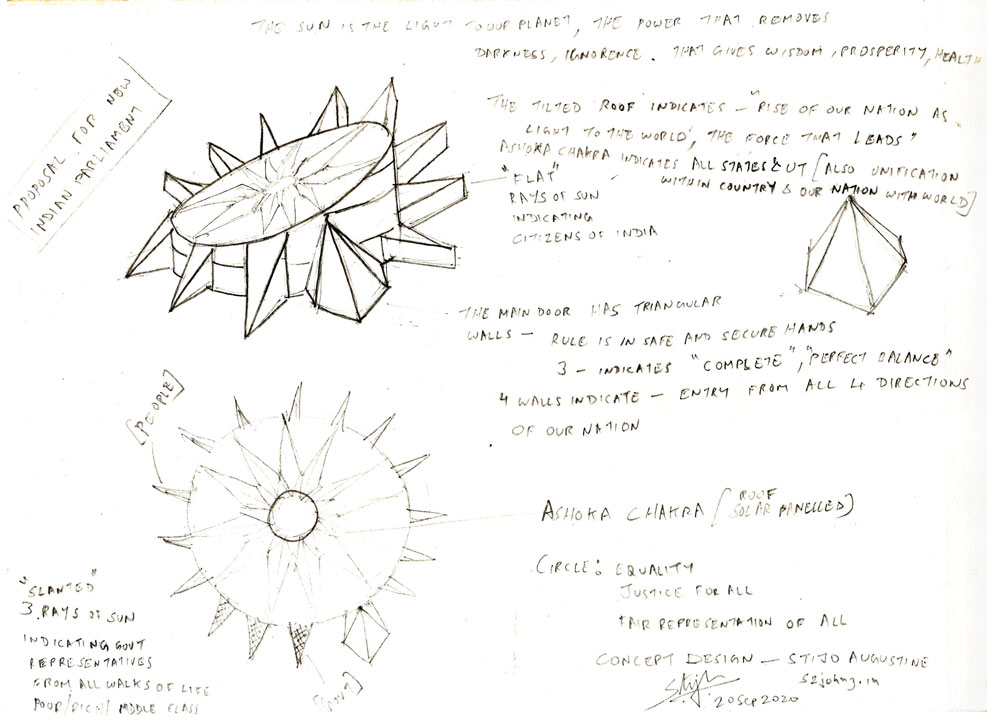 THE SUN IS THE LIGHT TO OUR PLANET, THE POWER THAT REMOVES
DARKNESS, IGNORENCE. THAT GIVES WISDOM, PROSPERITY, HEALTH
PROPOSAL FOR NEW
INDIAN PARLIAMENT
THE TILTED ROOF INDICATES - "RISE OF OUR NATION AS
LIGHT TO THE WORLD', THE FORCE THAT LEADS"
ASHOKA CHAKRA INDICATES ALL STATES & UT [ALSO UNIFICATION
WITHIN COUNTRY & OUR NATION WITH WORLD]
"FLAT"
RAYS OF SUN
INDICATING
CITIZENS OF INDIA
THE MAIN DOOR HAS TRIANGULAR
WALLS - RULE IS IN SAFE AND SECURE HANDS
3 - INDICATES "COMPLETE", "PERFECT BALANCE"
4 WALLS INDICATE - ENTRY FROM ALL 4 DIRECTIONS
OF OUR NATION
[PEOPLE]
ASHOKA CHAKRA [ROOF
SOLAR PANELLED]
CIRCLE: EQUALITY
JUSTICE FOR ALL
FAIR REPRESENTATION OF ALL
"SLANTED"
3 RAYS OF SUN
INDICATING GOVT
REPRESENTATIVES
FROM ALL WALKS OF LIFE
POOR/RICH/MIDDLE CLASS
[GOVT]
CONCEPT DESIGN - STIJO AUGUSTINE
20 SEP 2020